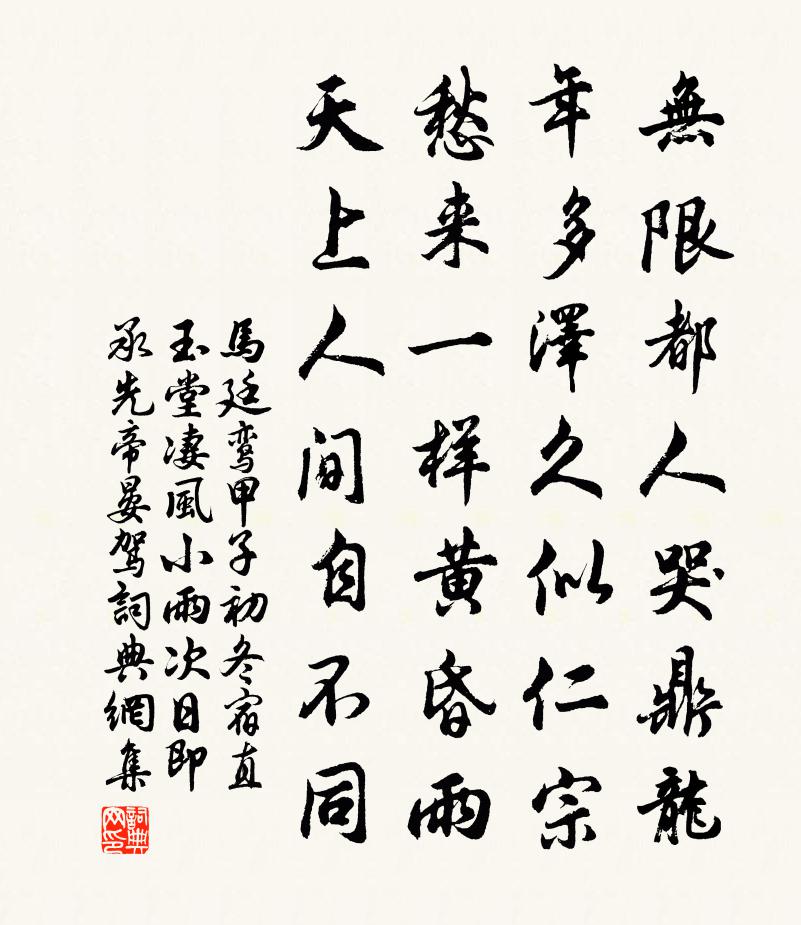 無限都人哭鼎龍
年多澤久似仁宗
愁来一样黄昏雨
天上人间自不同
馬廷鸾甲子初冬宿直
玉堂凄風小雨次日即
承先帝晏駕詞典網集
詞典网印